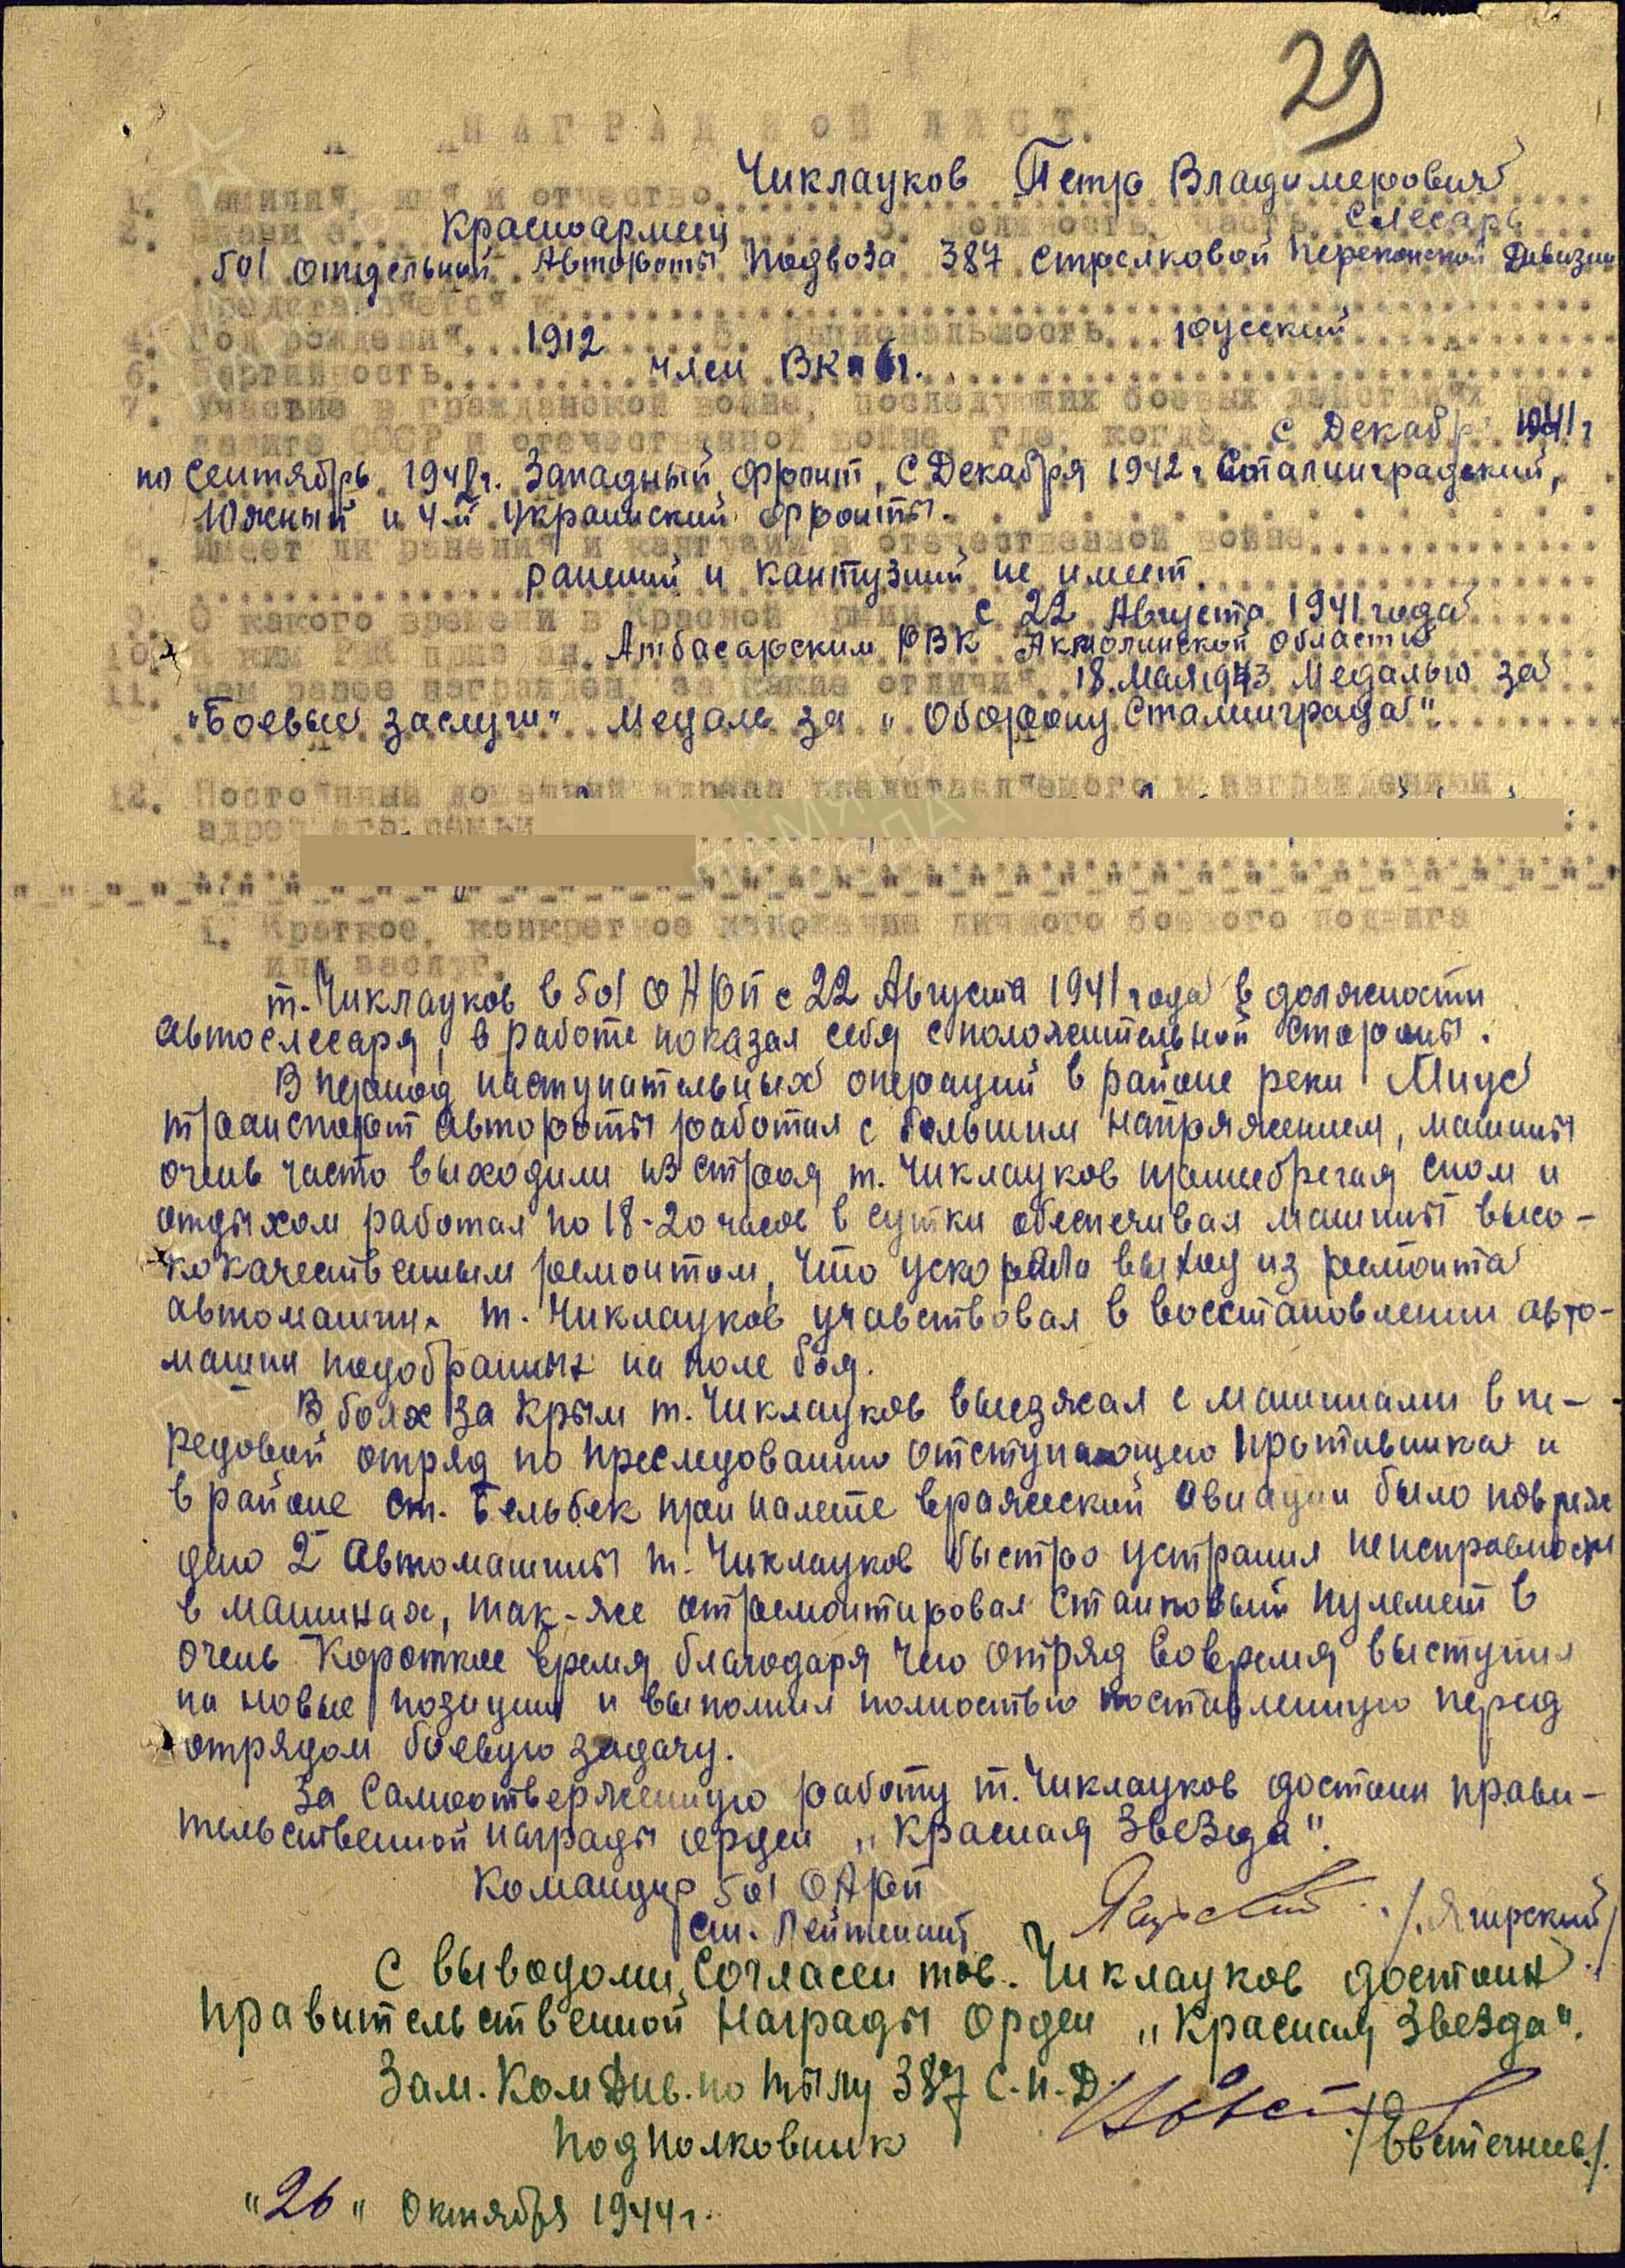 29
НАГРАДНОЙ ЛИСТ.
1. Фамилия, имя и отчество Чиклауков Петр Владимерович
2. Звание Красноармеец 3. Должность, часть Слесарь
501 отдельной Автороты Подвоза 387 Стрелковой Перекопской Дивизии
Представляется к
4. Год рождения 1912 5. Национальность русский
6. Партийность член ВКП б/.
7. Участие в гражданской войне, последующих боевых действиях по
защите СССР и отечественной войне, где, когда с Декабр 1941 г
по Сентябрь 1942г. Западный фронт, С Декабря 1942 г Сталинградский,
Южный и 4-й Украинский фронты.
8. Имеет ли ранения и контузии в отечественной войне
ранений и кантузий не имеет.
9. С какого времени в Красной Армии с 22 Августа 1941 года
10. Каким РВК призван Атбасарским РВК Акмолинской области
11. Чем ранее награжден, за какие отличия 18 мая 1943 Медалью за
"Боевые заслуги" Медаль за "Оборону Сталинграда".
12. Постоянный домашний адрес представляемого к награждению и
адрес его семьи
1. Краткое, конкретное изложение личного боевого подвига
или заслуг.
т. Чиклауков в 501 ОАРП с 22 Августа 1941 года в должности
автослесаря, в работе показал себя с положительной стороны.
В период наступательных операций в районе реки Миус
транспорт автороты работал с большим напряжением, машины
очень часто выходили из строя т. Чиклауков пренебрегая сном и
отдыхом работал по 18-20 часов в сутки обеспечивая машины высо-
кокачественным ремонтом, что ускоряло выход из ремонта
автомашин. т. Чиклауков учавствовал в восстановлении авто-
машин подобранных на поле боя.
В боях за Крым т. Чиклауков выезжал с машинами в пе-
редовой отряд по преследованию отступающего противника и
в районе ст. Бельбек при налете вражеской авиации было повреж
дено 2 автомашины т. Чиклауков быстро устранил неисправности
в машинах, так-же отремонтировал станковый пулемет в
очень короткое время благодаря чего отряд вовремя выступил
на новые позиции и выполнил полностью поставленную перед
отрядом боевую задачу.
За самоотверженную работу т. Чиклауков достоин прави-
тельственной награды орден "Красная Звезда".
Командир 501 ОАРП
Ст. Лейтенант /Ягирский/
С выводами, согласен тов. Чиклауков достоин
правительственной награды Орден "Красная Звезда".
Зам. Ком Див. по тылу 387 С.П.Д.
Подполковник /Евстегнеев/.
"26" Октября 1944г.